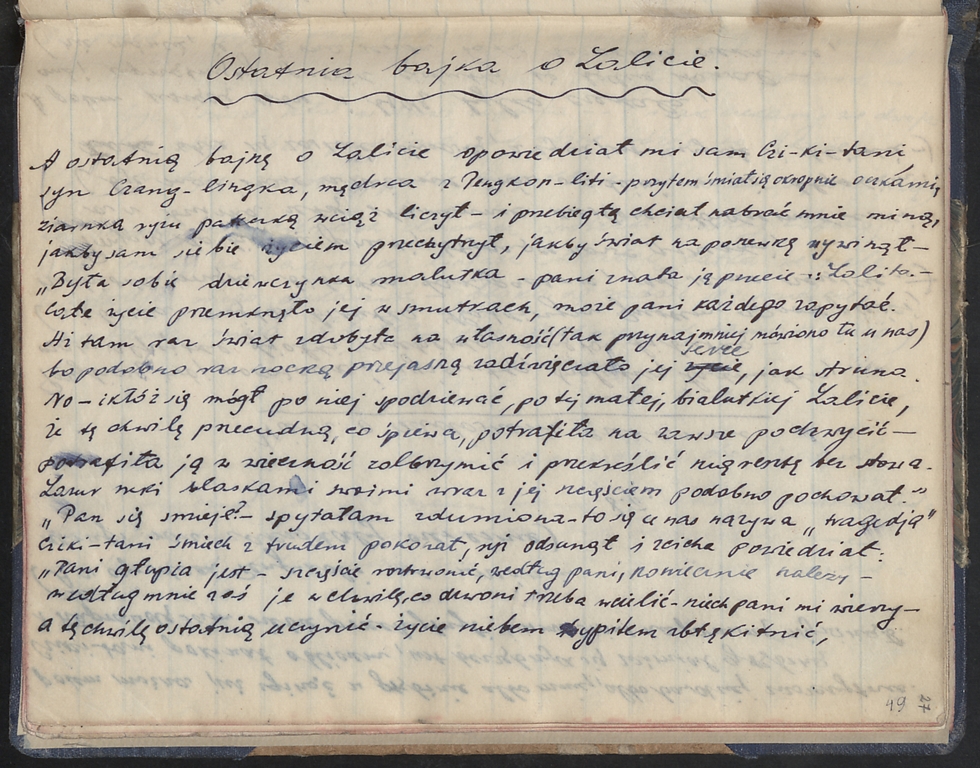 Ostatnia bajka o Lalicie.
A ostatnią bajkę o Lalicie opowiedział mi sam Czi-ki-tani
syn Czang-lingka, mędrca z Tengkon-liti - przytem śmiał się okropnie oczkami,
ziarnka ryżu pałeczką wciąż liczył - i przebiegłą chciał nabrać mnie miną,
jakby sam siebie życiem przechytrzył, jakby świat na podszewkę wywinął -
„Była sobie dziewczynka malutka - pani znała ją przecie: „Lolito. -
Całe życie przemknęło jej w smutkach, może pani każdego zapytać.
Aż tam raz świat zdobyła na własność (tak przynajmniej mówiono tu u nas)
bo podobno raz nocką przejasną zadźwięczało jej życie serce, jak struna.
No - i któż się mógł po niej spodziewać, po tej małej, bialutkiej Lalicie,
że tę chwilę przecudną, co śpiewa, potrafiła na zawsze podchwycić -
potrafiła ją w wieczność zolbrzymić i przekreślić nią resztę bez słowa.
Lazur rzeki blaskami swoimi wraz z jej szczęściem podobno pochował."
„Pan się śmieje? - spytałam zdumiona - to się u nas nazywa „tragedją"
Cziki-tani śmiech z trudem pokonał, ryż odsunął i zcicha powiedział:
„Pani głupia jest - szczęście roztrwonić, według pani, koniecznie należy -
według mnie zaś je w chwilę, co dzwoni trzeba wcielić - niech pani mi wierzy -
a tę chwilę ostatnią uczynić - życie niebem wypitem zbłękitnić,
49
27